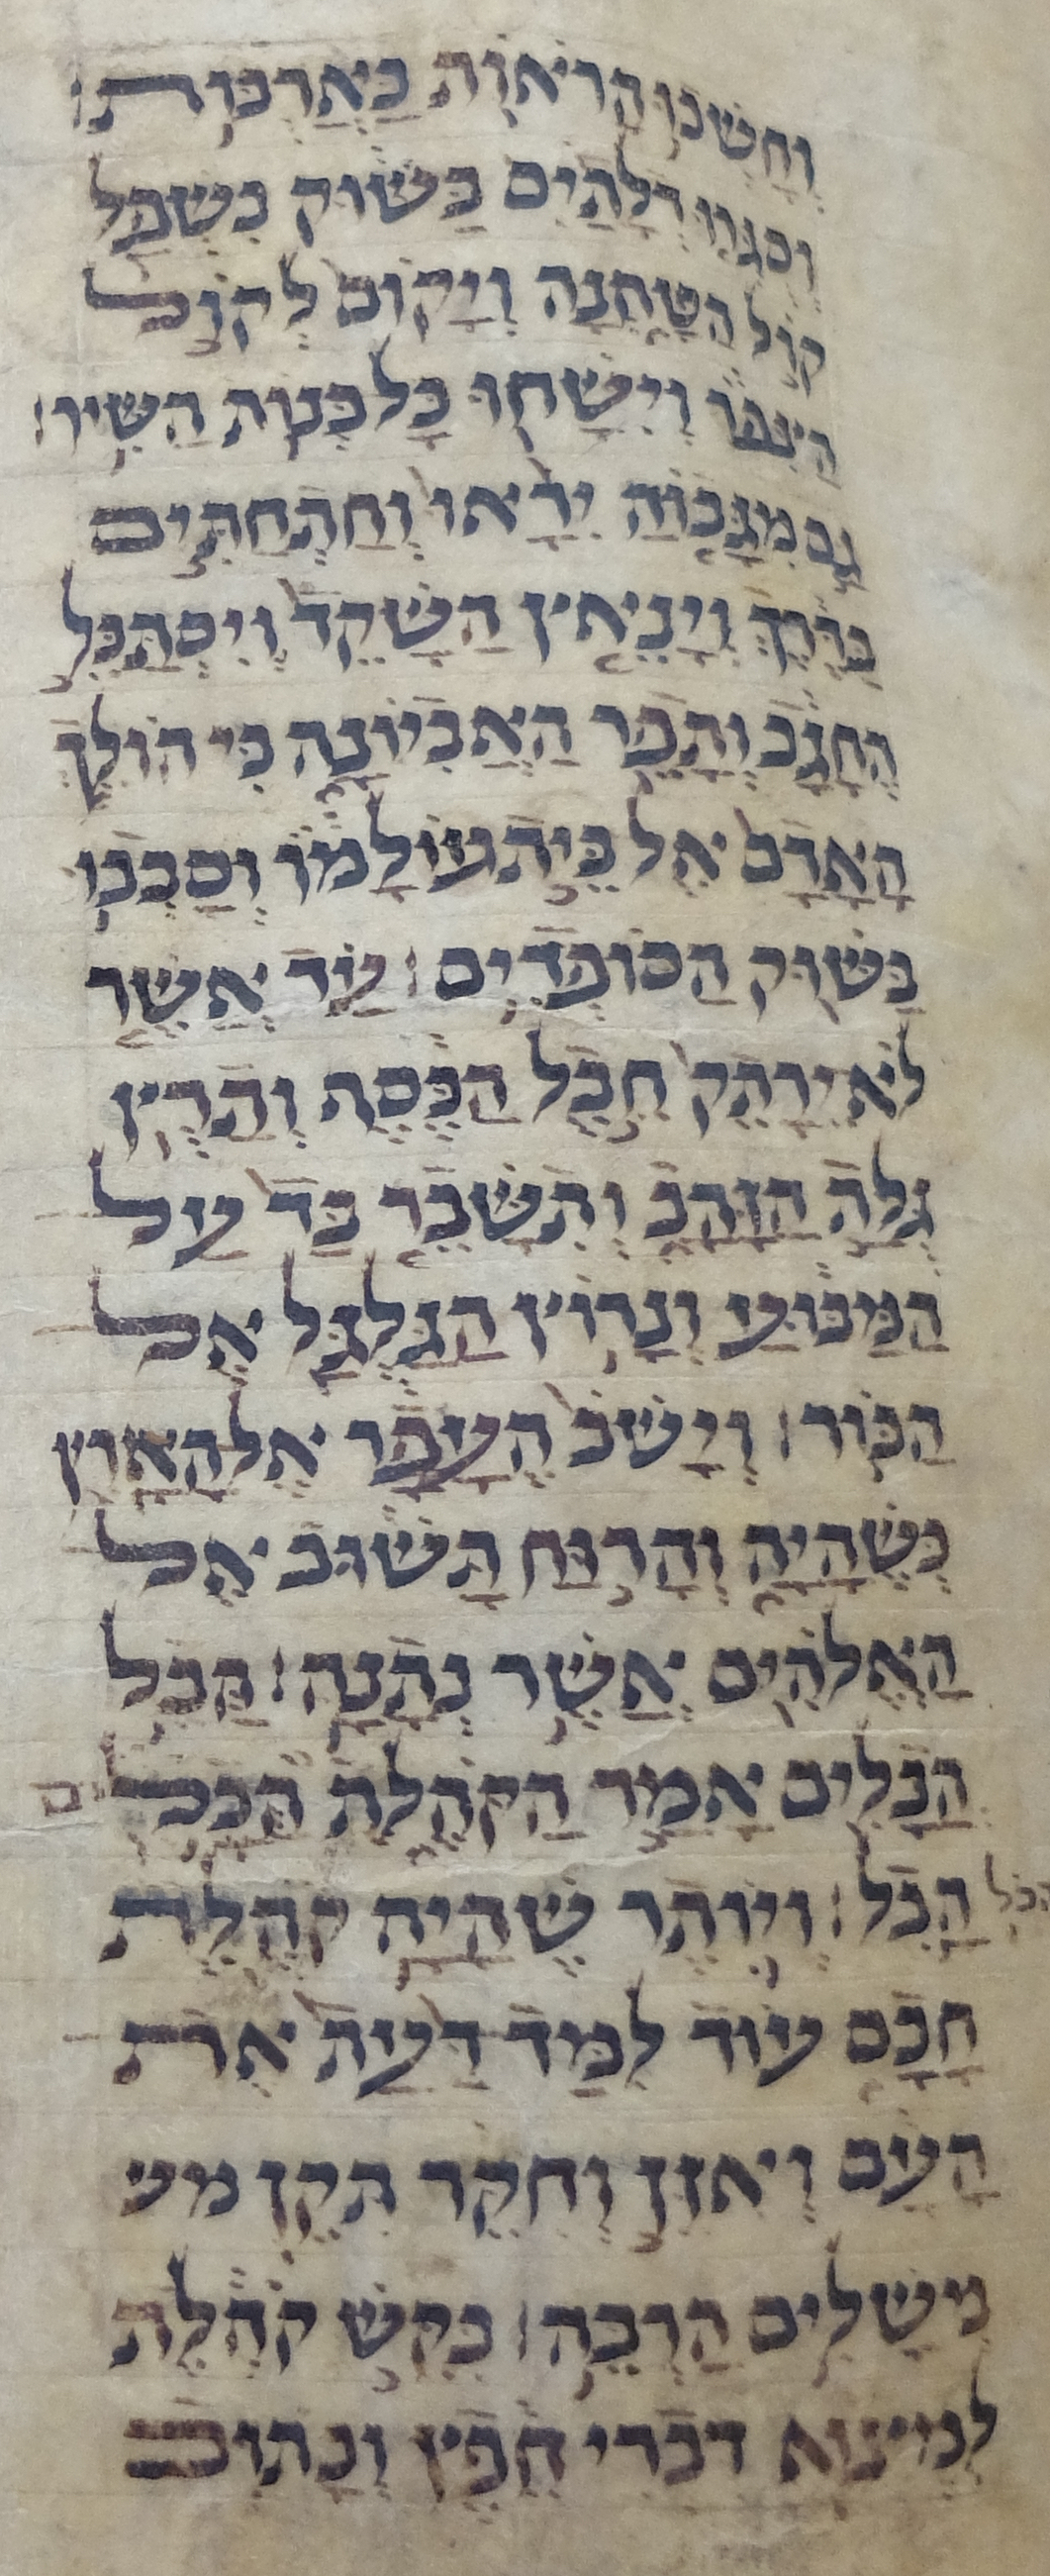 וְחָשְׁכוּ הָרֹאוֹת בָּאֲרֻבּוֹת׃
וְסֻגְּרוּ דְלָתַיִם בַּשּׁוּק בִּשְׁפַל
קוֹל הַטַּחֲנָה וְיָקוּם לְקוֹל
הַצִּפּוֹר וְיִשַּׁחוּ כָּל בְּנוֹת הַשִּׁיר׃
גַּם מִגָּבוֹהַּ יִרָאוּ וְחַתְחַתִּים
בַּדֶּרֶךְ וְיָנֵאץ הַשָּׁקֵד וְיִסְתַּבֵּל
הֶחָגָב וְתָפֵר הָאֲבִיּוֹנָה כִּי הוֹלֵךְ
הָאָדָם אֶל בֵּית עוֹלָמוֹ וְסָבְבוּ
בַשּׁוּק הַסּוֹפְדִים׃ עַד אֲשֶׁר
לֹא יֵרָתֵק חֶבֶל הַכֶּסֶף וְתָרֻץ
גֻּלַּת הַזָּהָב וְתִשָּׁבֶר כַּד עַל
הַמַּבּוּעַ וְנָרוֹץ הַגַּלְגַּל אֶל
הַבּוֹר׃ וְיָשֹׁב הֶעָפָר אֶל הָאָרֶץ
כְּשֶׁהָיָה וְהָרוּחַ תָּשׁוּב אֶל
הָאֱלֹהִים אֲשֶׁר נְתָנָהּ׃ הֲבֵל
הֲבָלִים אָמַר הַקֹּהֶלֶת הַכֹּל
הָבֶל׃ וְיוֹתֵר שֶׁהָיָה קֹהֶלֶת
חָכָם עוֹד לִמַּד דַּעַת אֶת
הָעָם וְאִזֵּן וְחִקֵּר תִּקֵּן מש
מְשָׁלִים הַרְבֵּה׃ בִּקֵּשׁ קֹהֶלֶת
לִמְצֹא דִּבְרֵי חֵפֶץ וְכָתוּב